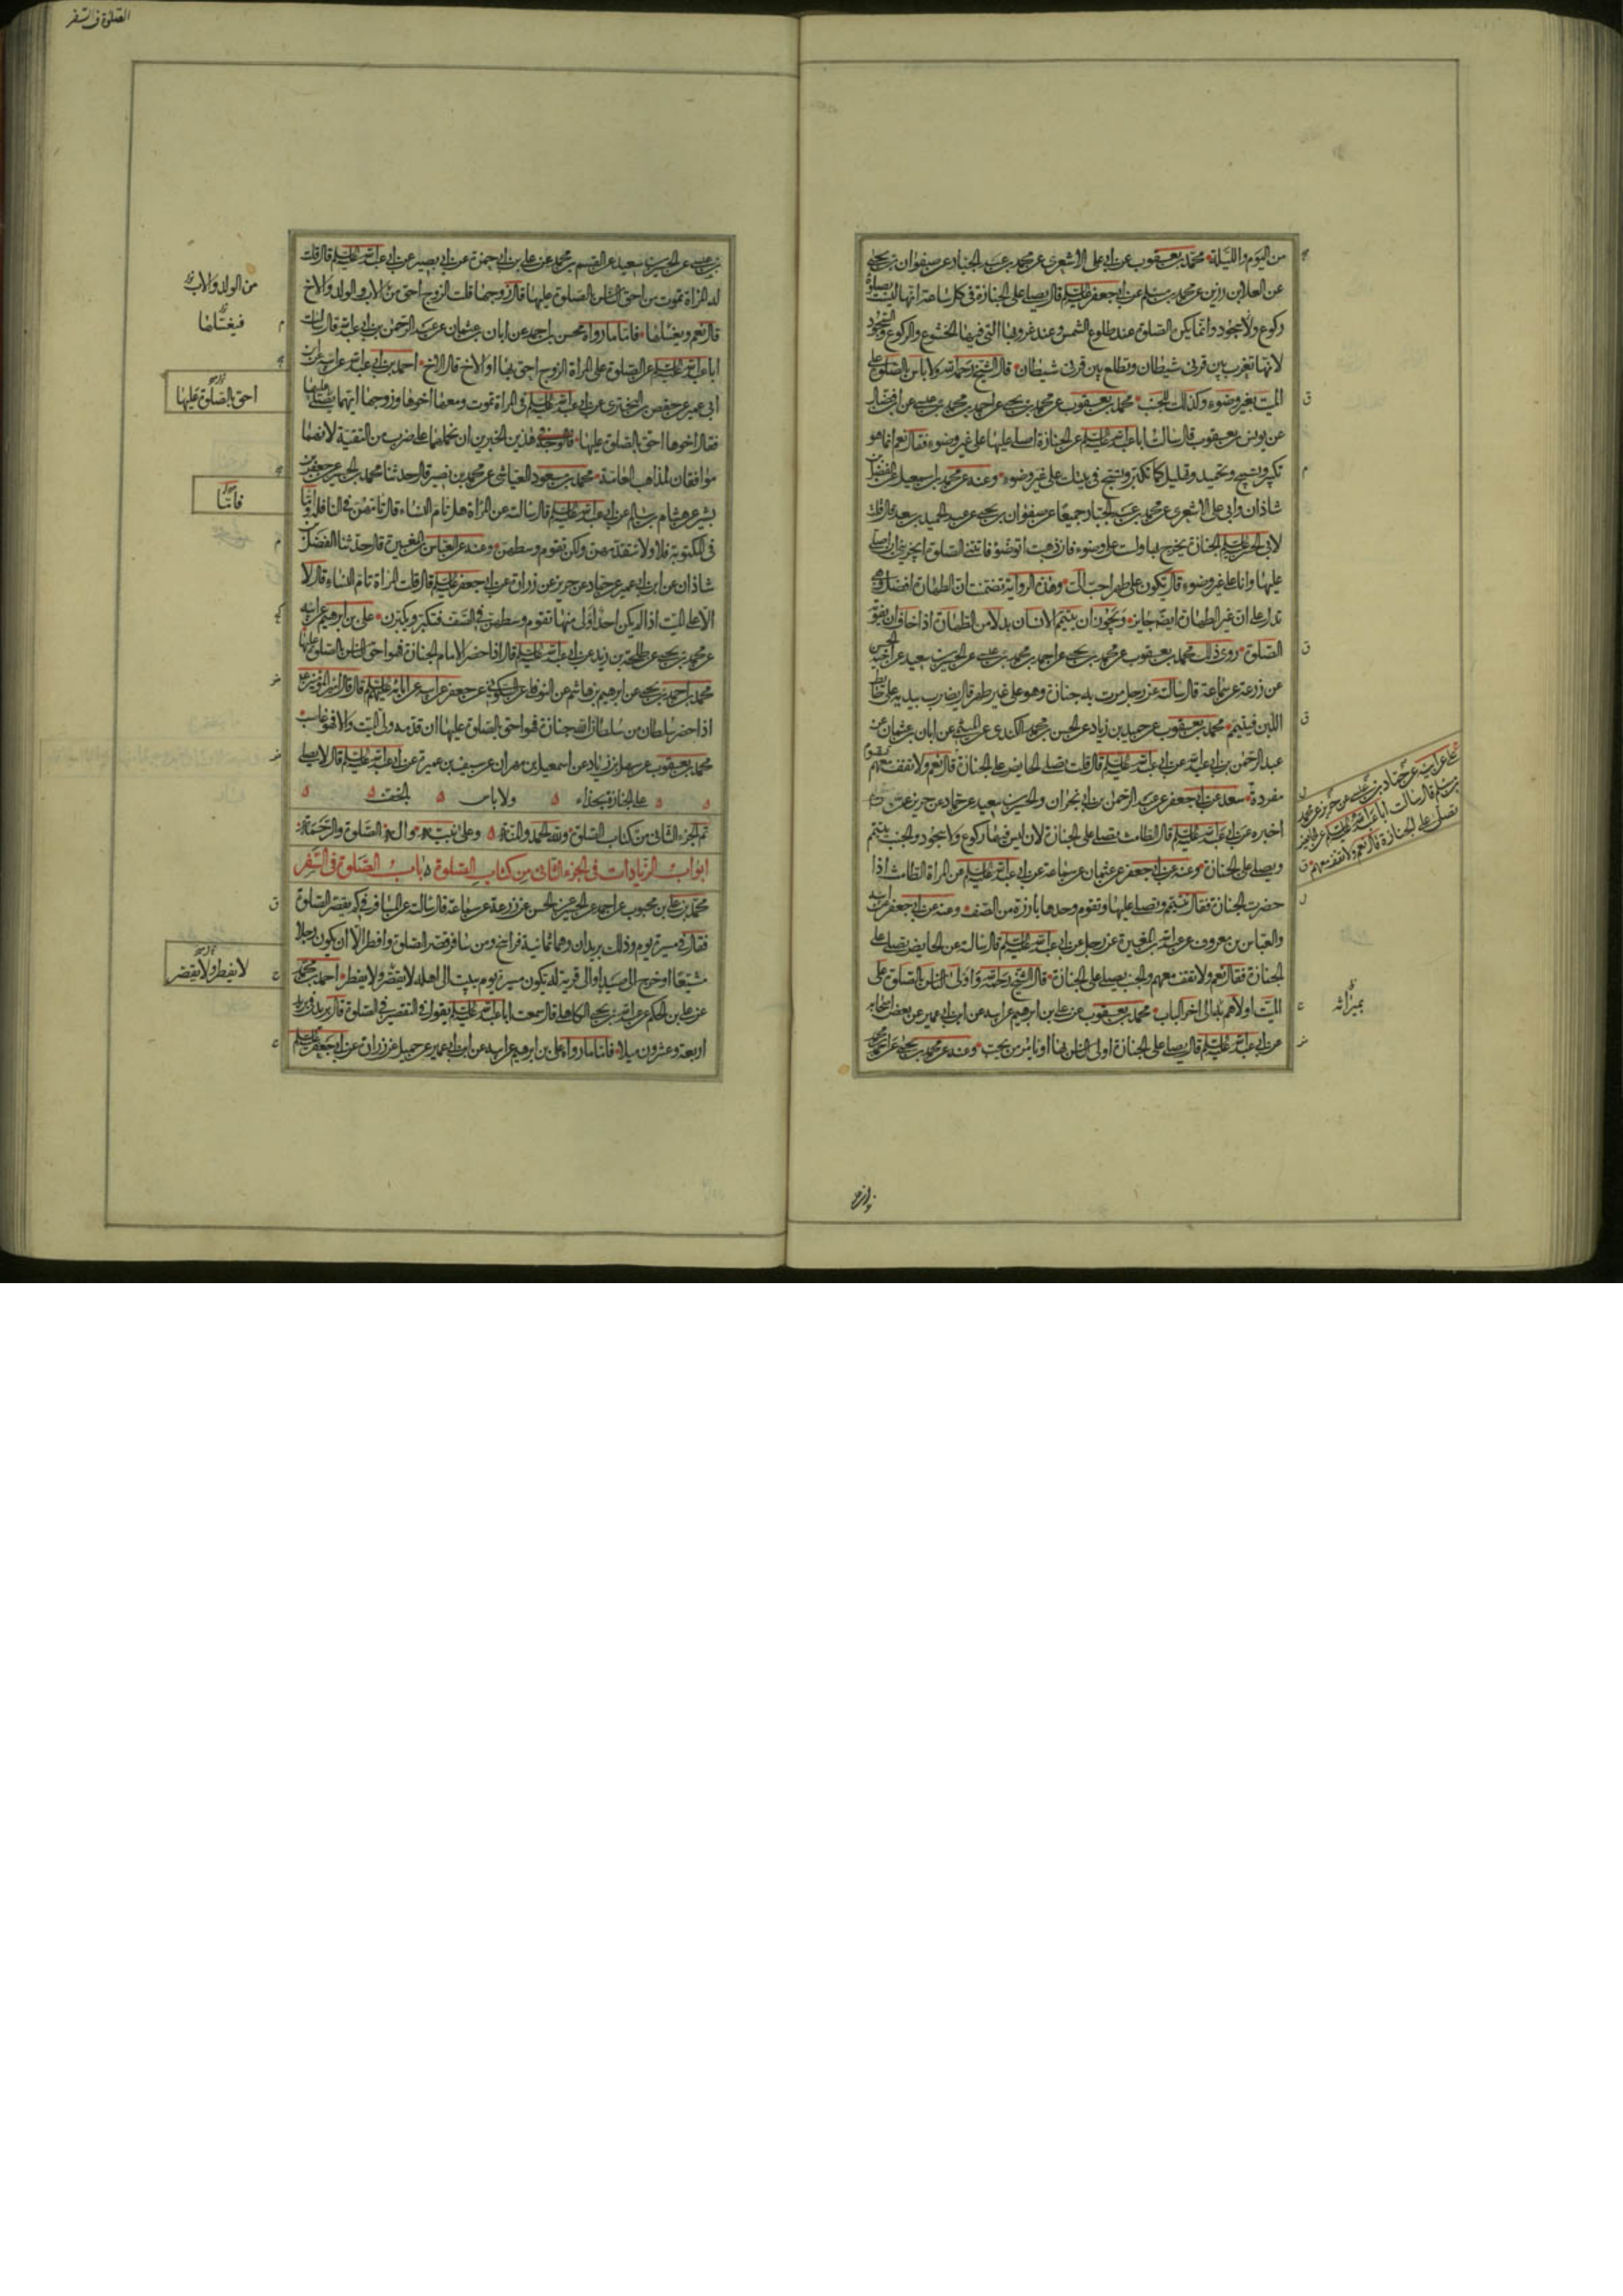 من اليوم والليلة محمد بن يعقوب عن ابى على الاشعرى عن محمد بن عبد الجبار عن صفوان بن يحيى
عن العلا بن رزين عن محمد بن مسلم عن ابى جعفر عليه السلم قال يصلى على الجنازة فى كل ساعة انها ليست بصلوة
ركوع ولا سجود وانما يكره الصلوة عند طلوع الشمس وعند غروبها التى فيها الخشوع والركوع والسجود
لانها تغرب بين قرنى شيطان وتطلع بين قرنى شيطان قال الشيخ رحمه الله ولا باس بالصلوة على
الميت بغير وضوء وكذلك الجنب محمد بن يعقوب عن محمد بن يحيى عن احمد بن محمد بن عيسى عن ابن فضال
عن يونس بن يعقوب قال سالت ابا عبد الله عليه السلم عن الجنازة اصلى عليها على غير وضوء فقال نعم انما هو
تكبير وتسبيح وتحميد وتهليل كما تكبر وتسبح فى بيتك على غير وضوء وعنه عن محمد بن اسمعيل عن الفضل بن
شاذان وابى على الاشعرى عن محمد بن عبد الجبار جميعا عن صفوان بن يحيى عن عبد الحميد بن سعد قال قلت
لابى الحسن عليه السلم الجنازة يخرج بها ولست على وضوء فان ذهبت اتوضؤ فاتتنى الصلوة ايجزينى ان اصلى
عليها وانا على غير وضوء قال تكون على طهر احب الى وهذه الرواية تضمنت ان الطهارة افضل وهى
تدل على ان غير الطهارة ايضا جايز ويجوز ان يتيمم الانسان بدلا من الطهارة اذا خاف ان يفوته
الصلوة روى ذلك محمد بن يعقوب عن محمد بن يحيى عن احمد بن محمد بن عيسى عن الحسين بن سعيد عن اخيه الحسن
عن زرعة عن سماعة قال سالته عن رجل مرت به جنازة وهو على غير طهر قال يضرب بيديه على حائط
اللبن فيتيمم محمد بن يعقوب عن حميد بن زياد عن الحسن بن محمد الكندى عن الميثمى عن ابان بن عثمان عن
عبد الرحمن بن ابى عبد الله عن ابى عبد الله عليه السلم قال قلت تصلى الحايض على الجنازة قال نعم ولا تقف معهم تقوم
مفردة سعد عن ابى جعفر عن عبد الرحمن بن ابى نجران والحسين بن سعيد عن حماد عن حريز عمن
اخبره عن ابى عبد الله عليه السلم قال الطامث تصلى على الجنازة لان ليس فيها ركوع ولا سجود والجنب يتيمم
ويصلى على الجنازة وعنه عن ابى جعفر عن عثمان عن سماعة عن ابى عبد الله عليه السلم عن المراة الطامث اذا
حضرت الجنازة فقال تتيمم وتصلى عليها وتقوم وحدها بارزة من الصف وعنه عن ابى جعفر عن ابيه
والعباس بن معروف عن عبد الله بن المغيرة عن رجل عن ابى عبد الله عليه السلم قال سالته عن الحايض تصلى على
الجنازة فقال نعم ولا تقف معهم والجنب يصلى على الجنازة قال الشيخ رحمه الله واولى الناس بالصلوة على
الميت اولاهم به الى اخر الباب محمد بن يعقوب عن على بن ابرهيم عن ابيه عن ابن ابى عمير عن بعض اصحابه
عن ابى عبد الله عليه السلم قال يصلى على الجنازة اولى الناس بها او يامر من يحب وعنه عن محمد بن يحيى عن احمد بن محمد
على عن ابيه عن حماد بن عيسى عن حريز عن محمد
بن مسلم قال سالت ابا عبد الله عليه السلم عن الحايض
تصلى على الجنازة قال نعم ولا تقف معهم
بميراثه
الصلوة فى السفر
بن عيسى عن الحسين بن سعيد عن القسم بن محمد عن على بن ابى حمزة عن ابى بصير عن ابى عبد الله عليه السلم قال قلت
له المراة تموت من احق الناس بالصلوة عليها قال زوجها قلت الزوج احق من الاب والولد والاخ
قال نعم ويغسلها فاما ما رواه محسن بن احمد عن ابان بن عثمان عن عبد الرحمن بن ابى عبد الله قال سالت
ابا عبد الله عليه السلم عن الصلوة على المراة الزوج احق بها او الاخ قال الاخ احمد بن ابى عبد الله عن ابيه عن ابن
ابى عمير عن حفص بن البخترى عن ابى عبد الله عليه السلم فى المراة تموت ومعها اخوها وزوجها ايهما يصلى عليها
فقال اخوها احق بالصلوة عليها فالوجه فى هذين الخبرين ان نحملهما على ضرب من التقية لانهما
موافقان لمذاهب العامة محمد بن مسعود العياشى عن محمد بن نصير قال حدثنا محمد بن الحسين عن جعفر بن
بشير عن هشام بن سالم عن ابى عبد الله عليه السلم قال سالته عن المراة هل تام النساء قال تامهن فى النافلة واما
فى المكتوبة فلا ولا تتقدمهن ولكن تقوم وسطهن وعنه عن العباس بن المغيرة قال حدثنا الفضل بن
شاذان عن ابن ابى عمير عن حماد عن حريز عن زرارة عن ابى جعفر عليه السلم قال قلت المراة تام النساء قال لا
الا على الميت اذا لم يكن احد اولى منها تقوم وسطهن فى الصف فتكبر ويكبرن على بن ابرهيم عن ابيه
عن محمد بن يحيى عن طلحة بن زيد عن ابى عبد الله عليه السلم قال اذا حضر الامام الجنازة فهو احق الناس بالصلوة عليها
محمد بن احمد بن يحيى عن ابرهيم بن هاشم عن النوفلى عن السكونى عن جعفر عن ابيه عن ابائه عليهم السلم قال قال امير المؤمنين
اذا حضر سلطان من سلطان الله جنازة فهو احق بالصلوة عليها ان قدمه ولى الميت والا فهو غاصب
محمد بن يعقوب عن سهل بن زياد عن اسمعيل بن مهران عن سيف بن عميرة عن ابى عبد الله عليه السلم قال لا يصلى
على الجنازة بحذاء ولا باس بالخف
تم الجزء الثانى من كتاب الصلوة ولله الحمد والمنة وعلى نبيه واله الصلوة والرحمة
ابواب الزيادات فى الجزء الثانى من كتاب الصلوة باب الصلوة فى السفر
محمد بن على بن محبوب عن احمد عن الحسين عن الحسن عن زرعة عن سماعة قال سالته عن المسافر فى كم يقصر الصلوة
فقال فى مسيرة يوم وذلك بريدان وهما ثمانية فراسخ ومن سافر قصر الصلوة وافطر الا ان يكون رجلا
مشيعا او خرج الى صيد او الى قرية له تكون مسيرة يوم يبيت الى اهله لا يقصر ولا يفطر احمد بن محمد
عن على بن الحكم عن عبد الله بن يحيى الكاهلى قال سمعت ابا عبد الله عليه السلم يقول فى التقصير فى الصلوة قال بريد فى بريد
اربعة وعشرون ميلا فاما ما رواه على بن ابرهيم عن ابيه عن ابن ابى عمير عن جميل عن زرارة عن ابى جعفر عليه السلم
من الولد والاب
فيغسلها
احق بالصلوة عليها
فاما
لا يفطر ولا يقصر